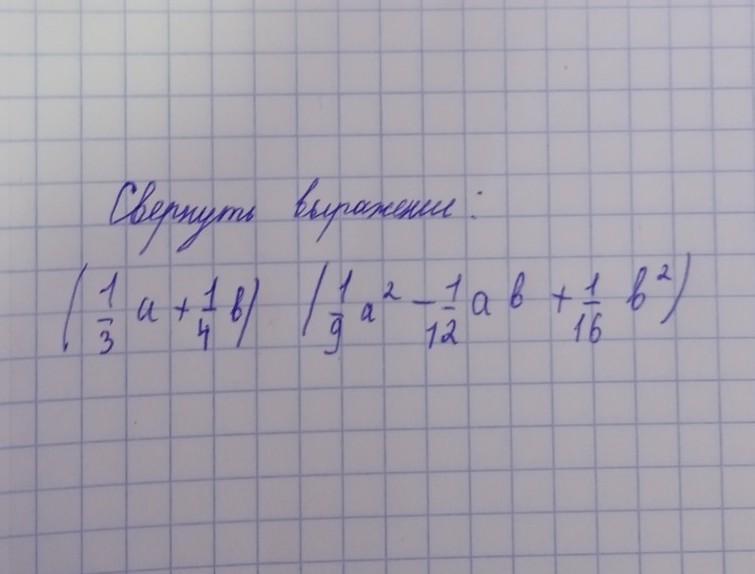 Свернуть выражение:
(1/3 a + 1/4 b) (1/9 a² - 1/12 a b + 1/16 b²)